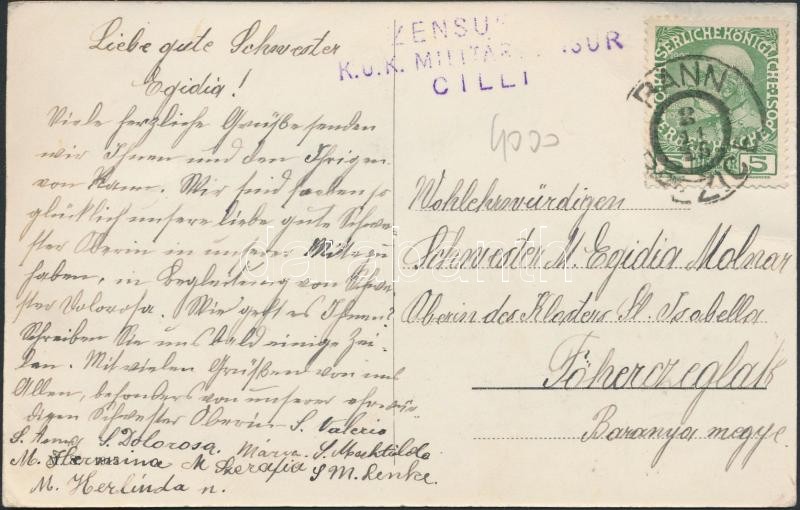 Liebe gute Schwester
Egidia!
Viele herzliche Grüße senden
wir Ihnen und den Ihrigen
von Rann. Wir sind so
glücklich unsere liebe gute Schwe-
ster Oberin in unserer Mitte zu
haben, in Begleitung von Schwe-
ster Dolorosa. Wie geht es Ihnen?
Schreiben Sie uns bald einige Zei-
len. Mit vielen Grüßen von uns
Allen, besonders von unserer ehrwür-
digen Schwester Oberin S. Valeria
S. Anna S. Dolorosa. Maria. S. Mechtilda
M. Hermina M Serafia S M. Lenke.
M. Herlinda n.
ZENSU
K.u.K. MILITÄR SUR
CILLI
KAISERLICHE KÖNIGLICHE
POST
5 5
RANN
Wohlehrwürdigen
Schwester M. Egidia Molnar
Oberin des Klosters St. Isabella
Föherczeglak
Baranya megye.
darabanth